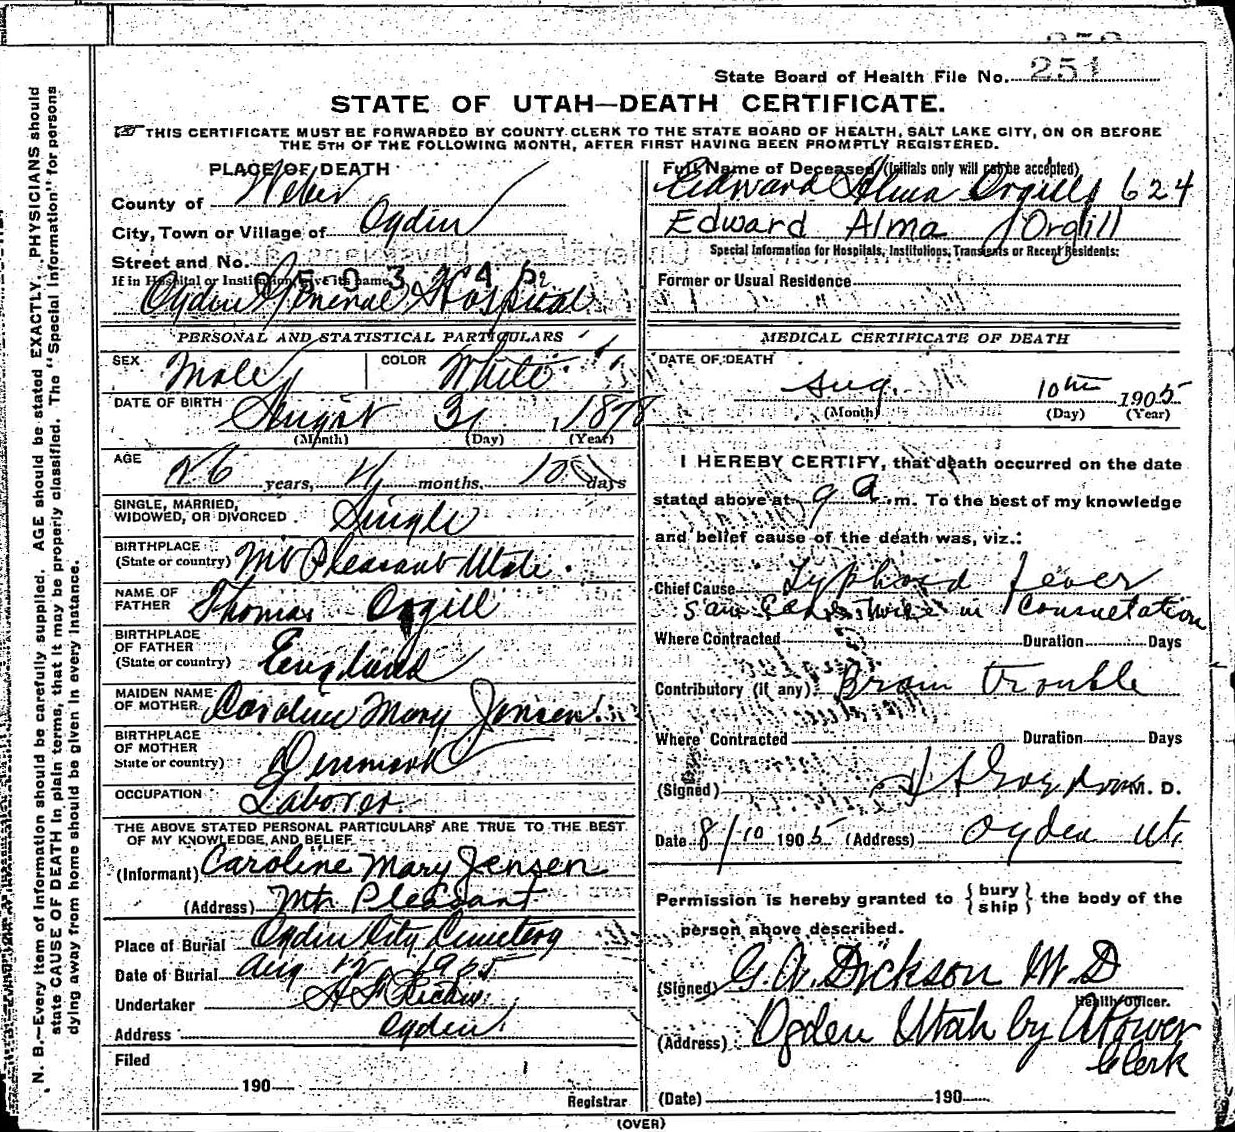 State Board of Health File No. 251
STATE OF UTAH—DEATH CERTIFICATE.
THIS CERTIFICATE MUST BE FORWARDED BY COUNTY CLERK TO THE STATE BOARD OF HEALTH, SALT LAKE CITY, ON OR BEFORE
THE 5TH OF THE FOLLOWING MONTH, AFTER FIRST HAVING BEEN PROMPTLY REGISTERED.
PLACE OF DEATH
County of Weber
City, Town or Village of Ogden
Street and No.
If in Hospital or Institution, give its name
Ogden General Hospital
PERSONAL AND STATISTICAL PARTICULARS
SEX Male COLOR White
DATE OF BIRTH August 31, 1878
(Month) (Day) (Year)
AGE 26 years, 11 months, 10 days
SINGLE, MARRIED,
WIDOWED, OR DIVORCED Single
BIRTHPLACE
(State or country) Mt Pleasant Utah.
NAME OF
FATHER Thomas Orgill
BIRTHPLACE
OF FATHER
(State or country) England
MAIDEN NAME
OF MOTHER Caroline Mary Jensen
BIRTHPLACE
OF MOTHER
State or country) Denmark
OCCUPATION Laborer
THE ABOVE STATED PERSONAL PARTICULARS ARE TRUE TO THE BEST
OF MY KNOWLEDGE AND BELIEF
(Informant) Caroline Mary Jensen
(Address) Mt. Pleasant
Place of Burial Ogden City Cemetery
Date of Burial Aug 12 1905
Undertaker
Address Ogden
Filed
190
Registrar
Full Name of Deceased (Initials only will not be accepted)
Edward Alma Orgill 624
Edward Alma Orgill
Special Information for Hospitals, Institutions, Transients or Recent Residents:
Former or Usual Residence
MEDICAL CERTIFICATE OF DEATH
DATE OF DEATH
Aug. 10th 1905
(Month) (Day) (Year)
I HEREBY CERTIFY, that death occurred on the date
stated above at 9 a.m. To the best of my knowledge
and belief cause of the death was, viz.:
Chief Cause Typhoid fever
Saw twice in consultation
Where Contracted Duration Days
Contributory (if any) Brain trouble
Where Contracted Duration Days
(Signed) M. D.
Date 8/10 1905 (Address) Ogden Ut.
Permission is hereby granted to {bury ship} the body of the
person above described.
(Signed) G. A. Dickson M.D
Health Officer.
(Address) Ogden Utah by A Power
Clerk
(Date) 190
(OVER)
N. B.—Every item of information should be carefully supplied. AGE should be stated EXACTLY. PHYSICIANS should
state CAUSE OF DEATH in plain terms, that it may be properly classified. The "Special Information" for persons
dying away from home should be given in every instance.